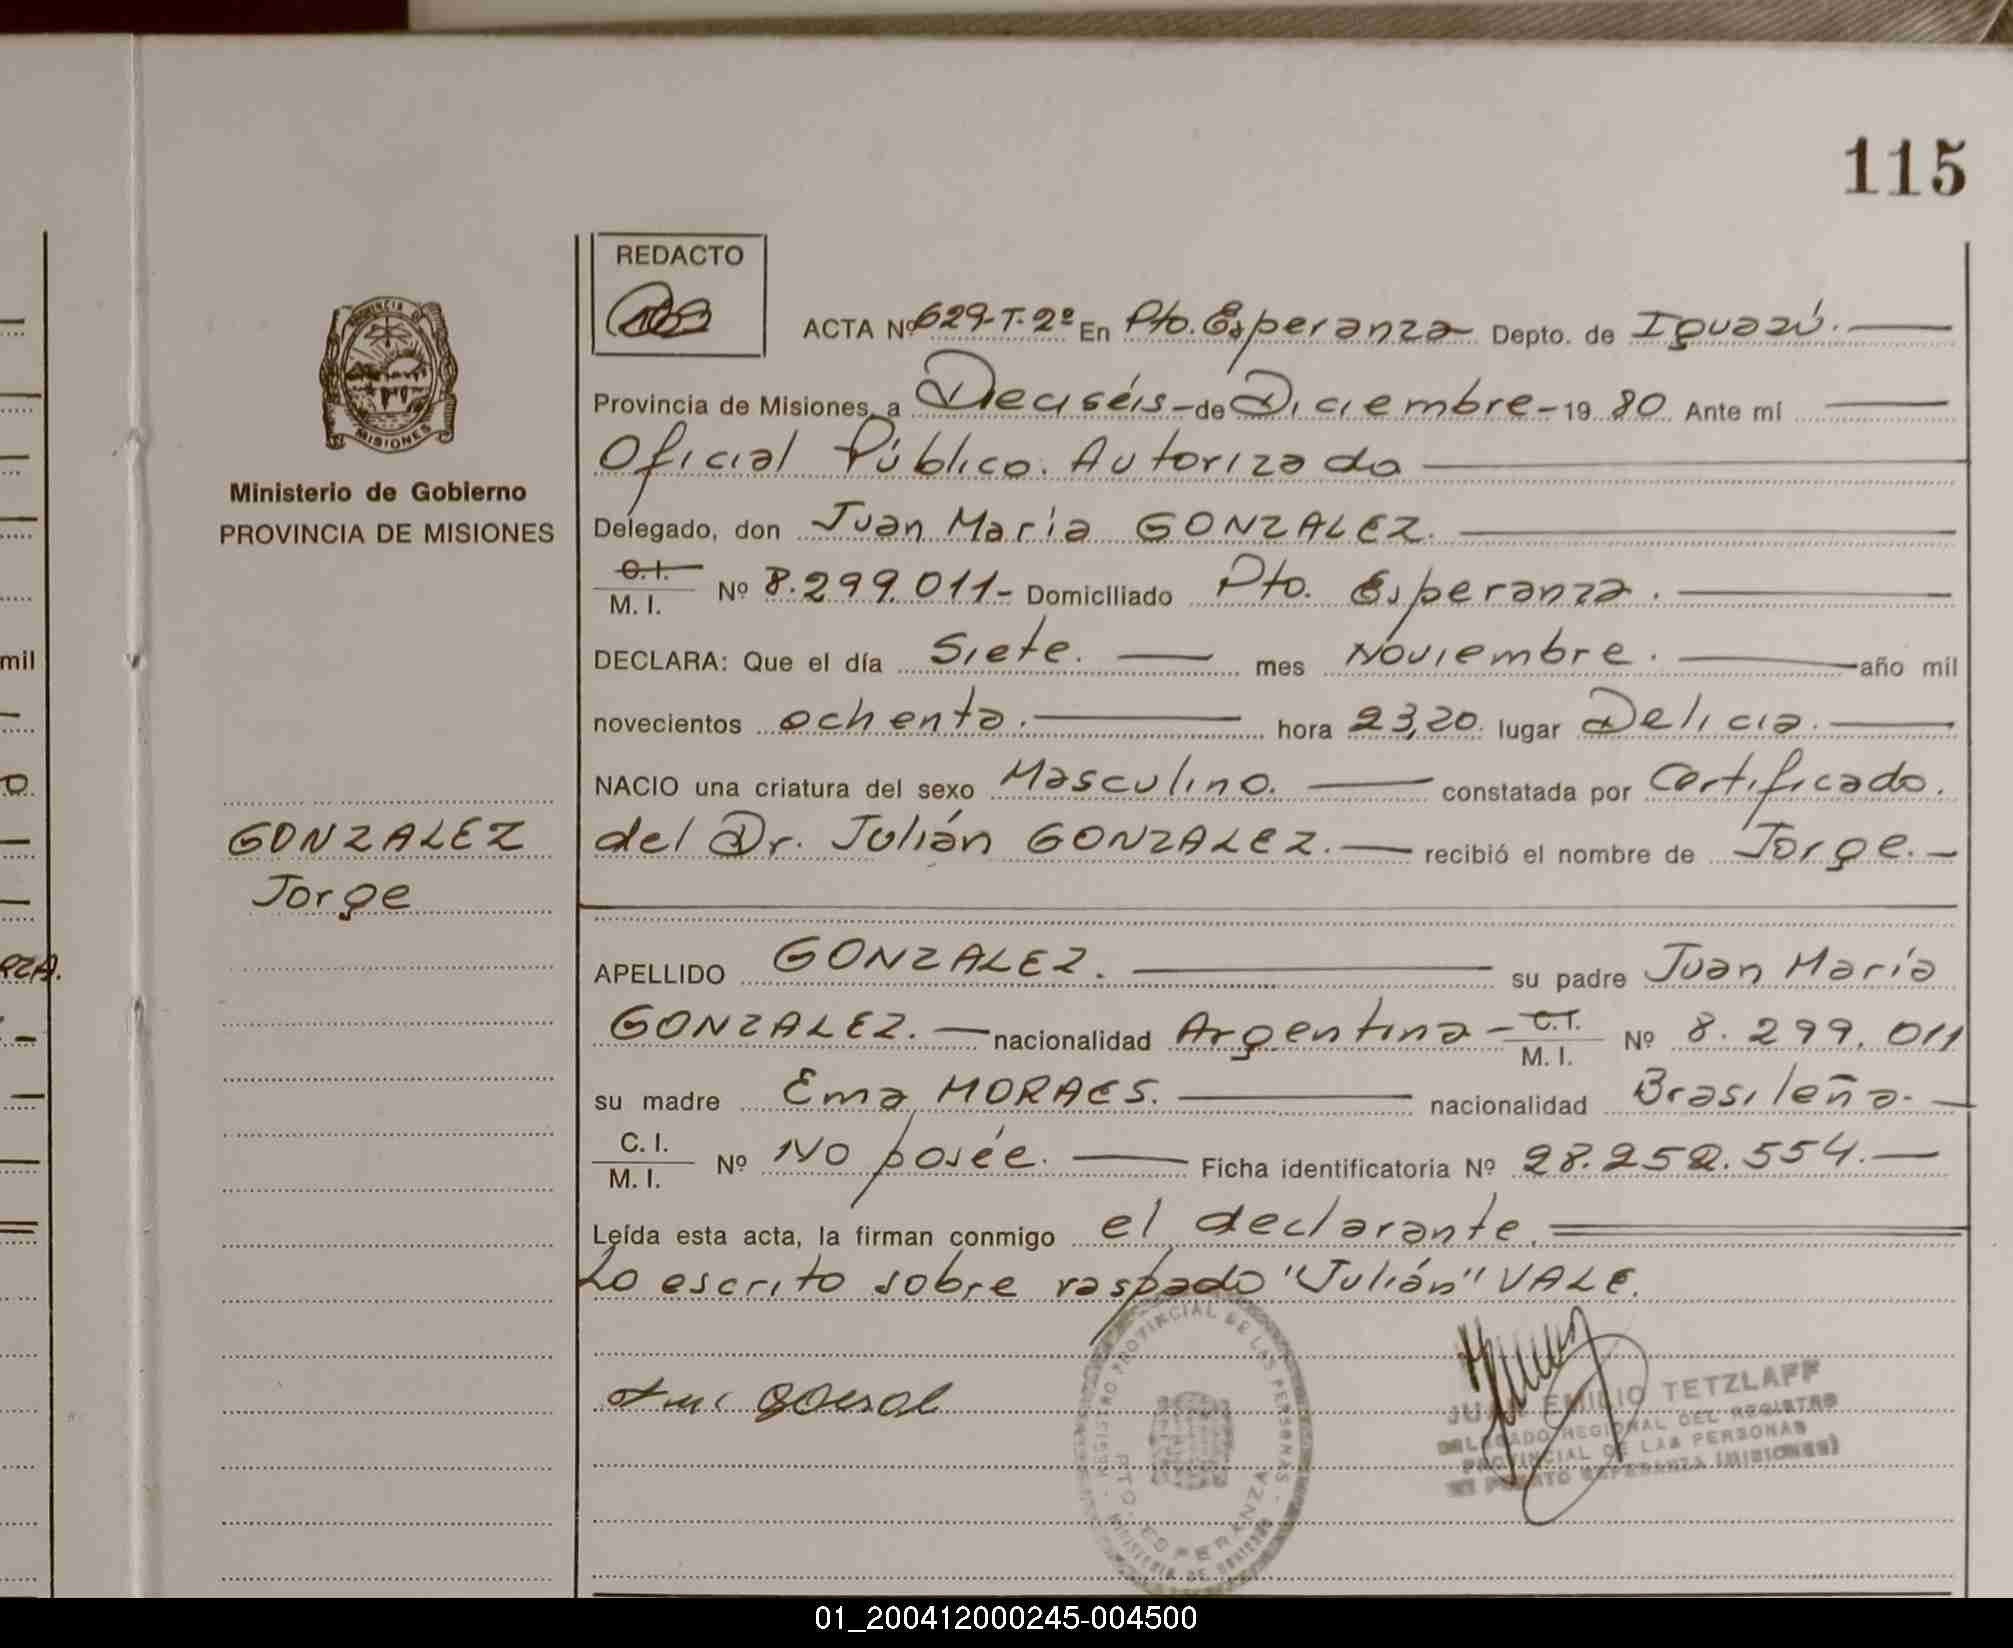 115
REDACTO
ACTA Nº 629-T-2º En Pto. Esperanza Depto. de Iguazú.
Provincia de Misiones, a Dieciséis - de Diciembre - 19 80 Ante mí
Oficial Público. Autorizado
Delegado, don Juan María GONZALEZ.
C.I.
M. I. Nº 8.299.011- Domiciliado Pto. Esperanza.
DECLARA: Que el día Siete. mes Noviembre. año mil
novecientos ochenta. hora 23,20. lugar Delicia.
NACIO una criatura del sexo Masculino. constatada por Certificado.
del Dr. Julián GONZALEZ. recibió el nombre de Jorge.-
APELLIDO GONZALEZ. su padre Juan María
GONZALEZ. nacionalidad Argentina - C.I.
M. I. Nº 8.299.011
su madre Ema MORAES. nacionalidad Brasileña.
C. I.
M. I. Nº No posée. Ficha identificatoria Nº 28.252.554.
Leída esta acta, la firman conmigo el declarante.
Lo escrito sobre raspado "Julián" VALE.
PROVINCIA DE
MISIONES
Ministerio de Gobierno
PROVINCIA DE MISIONES
GONZALEZ
Jorge
REGISTRO PROVINCIAL DE LAS PERSONAS
PTO. ESPERANZA
MINISTERIO DE GOBIERNO
JUAN EMILIO TETZLAFF
DELEGADO REGIONAL DEL REGISTRO
PROVINCIAL DE LAS PERSONAS
PUERTO ESPERANZA (MISIONES)
mil
01_200412000245-004500